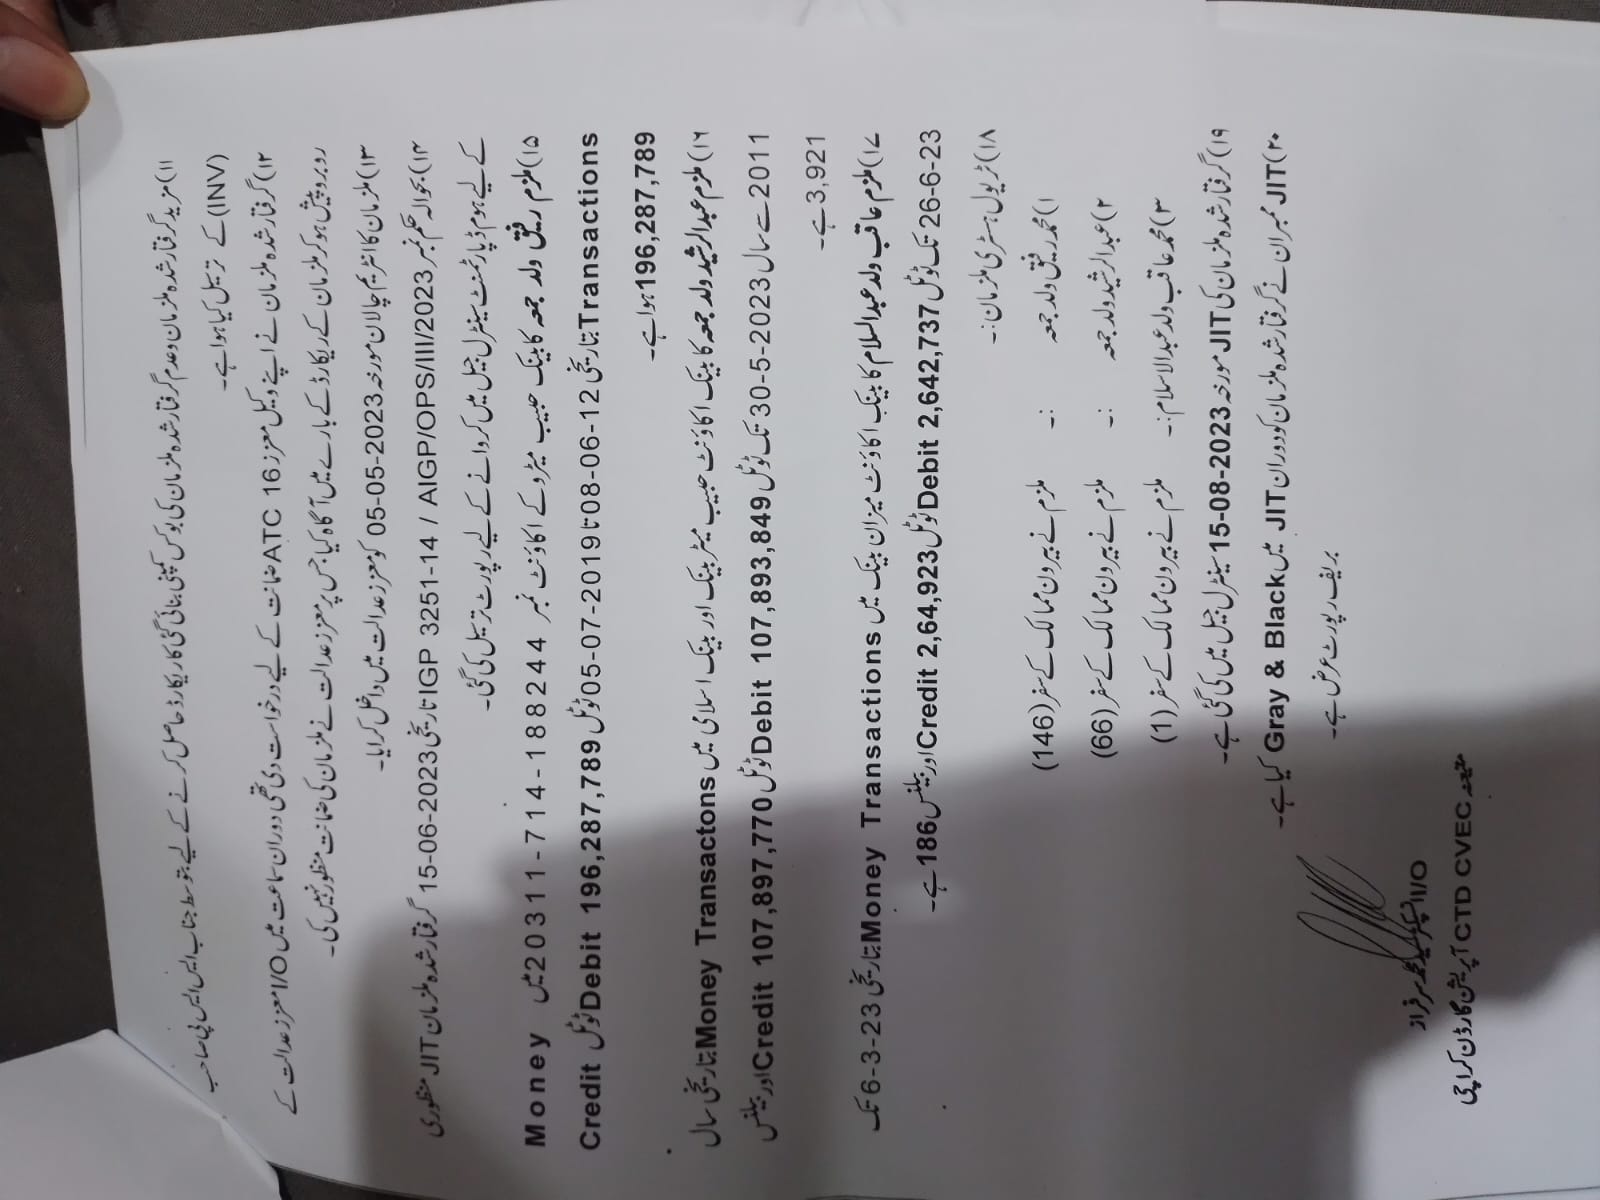 ۱۱) مزید گرفتار شدہ ملزمان و عدم گرفتار شدہ ملزمان کی بوگس کمپنی بنائی گئی کا ریکارڈ حاصل کرنے کے لیے بتوسط جناب ایس ایس پی صاحب
(INV) کے ترسیل کیا ہوا ہے۔
۱۲) گرفتار شدہ ملزمان نے اپنے وکیل معزز ATC 16 ضمانت کے لیے درخواست دی تھی دوران سماعت میں I/O معزز عدالت کے
روبرو پیش ہو کر ملزمان کے ریکارڈ کے بارے میں آگاہ کیا جس پر معزز عدالت نے ملزمان کی ضمانت منظور نہیں کی۔
۱۳) ملزمان کا انٹریم چالان مورخہ 05-05-2023 کو معزز عدالت میں داخل کرایا۔
۱۴) بحوالہ حکم نمبر IGP 3251-14 / AIGP/OPS/III/2023 تاریخی 15-06-2023 گرفتار شدہ ملزمان JIT منظوری
کے لیے ہوم ڈپارٹمنٹ سینٹرل جیل میں کروانے کے لیے رپورٹ ترسیل کی گئی۔
۱۵) ملزم رفیق ولد جمعہ کا بینک حبیب میٹرو کے اکاؤنٹ نمبر 20311-714-188244 میں Money
Transactions بتاریخی 12-06-08 تا 05-07-2019 ٹوٹل Debit 196,287,789 ٹوٹل Credit
196,287,789 ہوا ہے۔
۱۶) ملزم عبدالرشید ولد جمعہ کا بینک اکاؤنٹ حبیب میٹر بینک اور بینک اسلامی میں Money Transactons بتاریخی سال
2011 سے سال 30-5-2023 تک ٹوٹل Debit 107,893,849 ٹوٹل Credit 107,897,770 اور بیلنس
3,921 ہے۔
۱۷) ملزم عاقب ولد عبدالسلام کا بینک اکاؤنٹ میزان بینک میں Money Transactions بتاریخی 6-3-23 تک
26-6-23 تک ٹوٹل Debit 2,642,737 ٹوٹل Credit 2,64,923 اور بیلنس 186 ہے۔
۱۸) ٹریول ہسٹری ملزمان:۔
۱) محمد رفیق ولد جمعہ :۔ ملزم نے بیرون ممالک کے سفر (146)
۲) عبدالرشید ولد جمعہ :۔ ملزم نے بیرون ممالک کے سفر (66)
۳) محمد عاقب ولد عبدالاسلام:۔ ملزم نے بیرون ممالک کے سفر (1)
۱۹) گرفتار شدہ ملزمان کی JIT مورخہ 15-08-2023 سینٹرل جیل میں کی گئی ہے۔
۲۰) JIT ممبران نے گرفتار شدہ ملزمان کو دوران JIT میں Gray & Black کیا ہے۔
بریف رپورٹ عرض ہے۔
I/O انسپکٹر سرفراز
متعینہ CTD CVEC آپریشن گارڈن کراچی